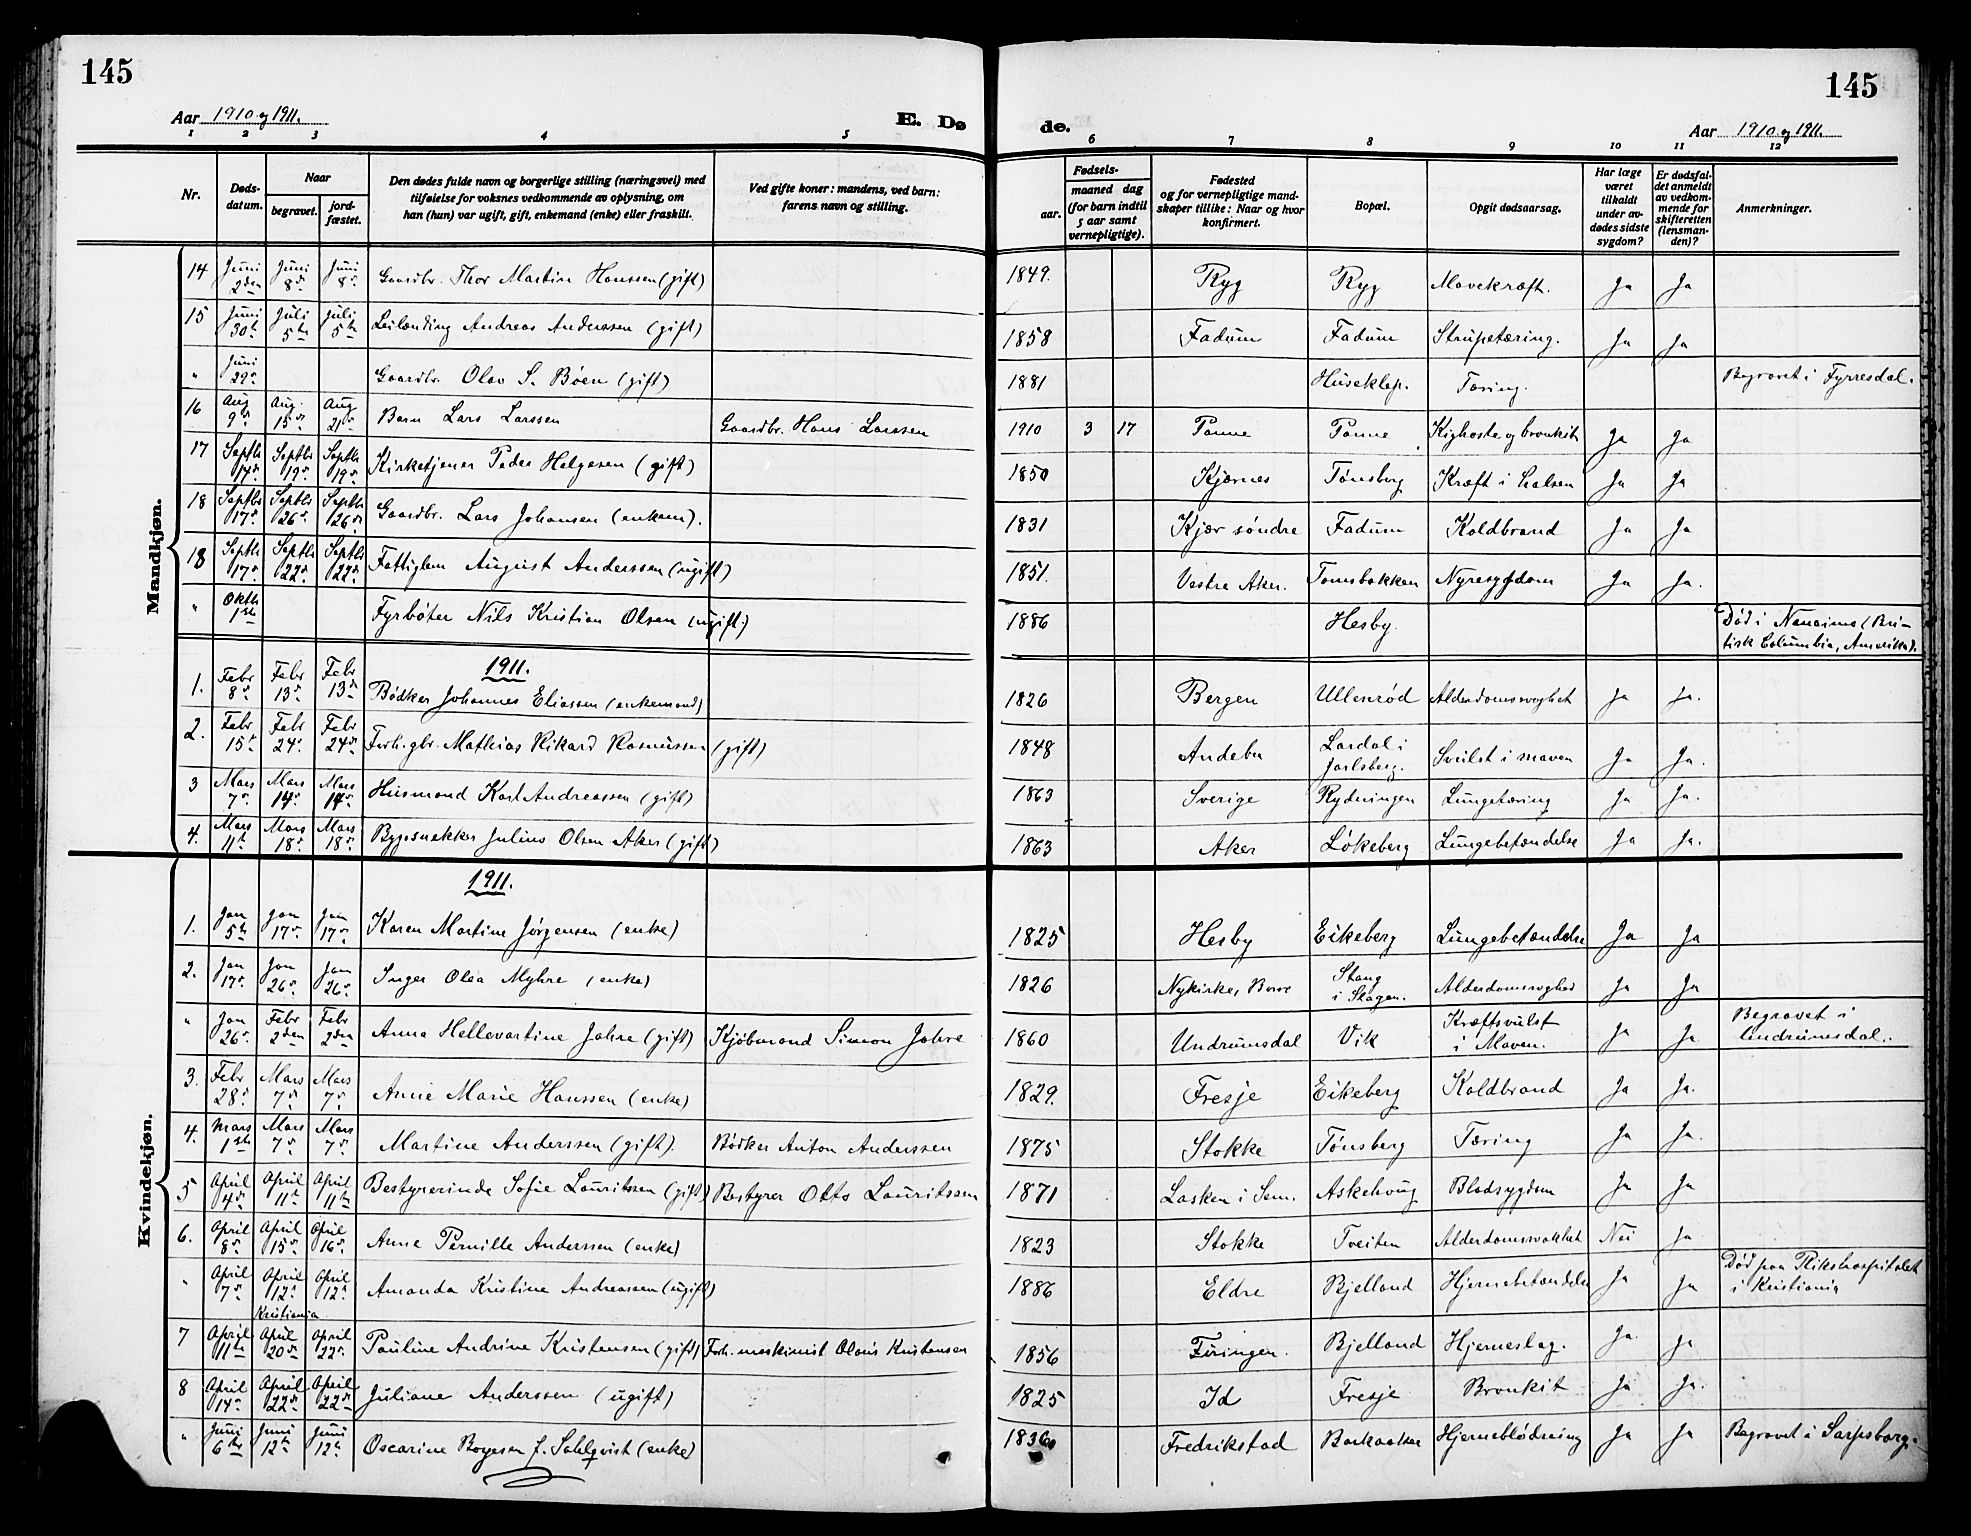 145
145
Aar 1910 og 1911.
E. Dø
de.
Aar 1910 og 1911.
1 2 3 4 5 6 7 8 9 10 11 12
Nr. | Dødsdatum. | Naar begravet. | jordfæstet. | Den dødes fulde navn og borgerlige stilling (næringsvei) med tilføielse for voksnes vedkommende av oplysning, om han (hun) var ugift, gift, enkemand (enke) eller fraskilt. | Ved gifte koner: mandens, ved barn: farens navn og stilling. | Fødsels- aar. | maaned dag (for barn indtil 5 aar samt vernepligtige). | Fødested og for vernepligtige mandskaper tillike: Naar og hvor konfirmert. | Bopæl. | Opgit dødsaarsag. | Har læge været tilkaldt under avdødes sidste sygdom? | Er dødsfaldet anmeldt av vedkommende for skifteretten (lensmanden)? | Anmerkninger.
Mandkjøn.
14 | Juni 2den | Juni 8de | Juni 8de | Gaardbr. Thor Martin Hanssen (gift) | 1849. | Ryg | Ryg | Mavekræft. | Ja | Ja
15 | Juni 30te | Juli 5te | Juli 5te | Leilending Andreas Anderssen (gift) | 1858 | Fadum | Fadum | Strupetæring. | Ja | Ja
" | Juni 29de | Gaardbr. Olav S. Bøen (gift) | 1881 | Huseklep. | Tæring. | Begravet i Fyrresdal.
16 | Aug 9de | Aug. 15de | Aug 21de | Barn Lars Larssen | Gaardbr. Hans Larssen | 1910 | 3 | 17 | Tanne | Tanne | Kighoste og bronkit | Ja | Ja
17 | Septbr 14de | Septbr 19de | Septbr 19de | Kirketjener Peder Helgesen (gift) | 1850 | Kjærnes | Tønsberg | Kræft i halsen | Ja | Ja
18 | Septbr 17de | Septbr 26de | Septbr 26de | Gaardbr. Lars Johansen (enkem). | 1831 | Kjær søndre | Fadum | Koldbrand | Ja | Ja
18 | Septbr 17de | Septbr 22de | Septbr 22de | Fattiglem August Anderssen (ugift) | 1851. | Vestre Aker. | Tomsbakken | Nyresygdom | Ja | Ja.
" | Oktbr 1ste | Fyrbøter Nils Kristian Olsen (ugift.) | 1886 | Hesby. | Død i Nanaimo (Britisk Columbia, Amerika).
1911.
1. | Febr 8de | Febr 13de | Febr 13de | Bødker Johannes Eliassen (enkemand) | 1826 | Bergen | Ullenrød | Alderdomssvaghet | Ja | Ja.
2. | Febr 15de | Febr 24de | Febr 24de | Forh. gbr. Mathias Rikard Rasmussen (gift) | 1848 | Andebu | Lardal i Jarlsberg. | Svulst i maven | Ja | Ja.
3 | Mars 7de | Mars 14de | Mars 14de | Husmand Karl Andreassen (gift) | 1863 | Sverige | Rydningen | Lungetæring | Ja | Ja.
4. | Mars 11te | Mars 18de | Mars 18de | Bygsnekker Julius Olsen Aker (gift) | 1863 | Aker | Løkeberg | Lungebetændelse | Ja | Ja.
Kvindekjøn.
1911.
1. | Jan 5te | Jan 17de | Jan 17de | Karen Martine Jørgensen (enke) | 1825 | Hesby | Eikeberg | Lungebetændelse | Ja | Ja
2. | Jan 17de | Jan 26de | Jan 26de | Inger Olea Myhre (enke) | 1826 | Nykirke, Borre | Stang i Skagen. | Alderdomssvaghed | Ja | Ja
" | Jan 26de | Febr 2den | Febr 2den | Anna Hellevartine Jahre (gift) | Kjøbmand Simon Jahre | 1860 | Undrumsdal | Vik | Kræftsvulst i Maven. | Ja | Ja | Begravet i Undrumsdal.
3. | Febr 28de | Mars 7de | Mars 7de | Anne Marie Hanssen (enke) | 1829. | Fresje | Eikeberg | Koldbrand | Ja | Ja.
4. | Mars 1ste | Mars 7de | Mars 7de | Martine Anderssen (gift). | Bødker Anton Anderssen | 1875 | Stokke | Tønsberg | Tæring | Ja | Ja.
5 | April 4de | April 11te | April 11te | Bestyrerinde Sofie Lauritssen (gift) | Bestyrer Otto Lauritssen | 1871 | Lasken i Sem. | Askehoug | Blodsygdom | Ja | Ja
6. | April 8de | April 15de | April 16de | Anne Pernille Anderssen (enke) | 1823 | Stokke | Tveiten | Alderdomssvakhet | Nei | Ja
" | April 7de | April 12te Kristiania | April 12te | Amanda Kristine Andreassen (ugift) | 1886 | Eldre | Bjelland | Hjernebetændelse | Ja | Ja | Død paa Rikshospitalet i Kristiania
7 | April 11te | April 20de | April 22de | Pauline Andrine Kristensen (gift) | Forh. maskinist Olaus Kristensen | 1856 | Firingen. | Bjelland | Hjerneslag. | Ja. | Ja
8 | April 14de | April 22de | April 22de | Juliane Anderssen (ugift) | 1825 | Id | Fresje | Bronkit | Ja | Ja.
" | Juni 6te | Juni 12te | Juni 12te | Oscarine Borgesen f. Sahlqvist (enke) | 1836 | Fredrikstad | Barkaaker | Hjerneblødning | Ja | Ja | Begravet i Sarpsborg.